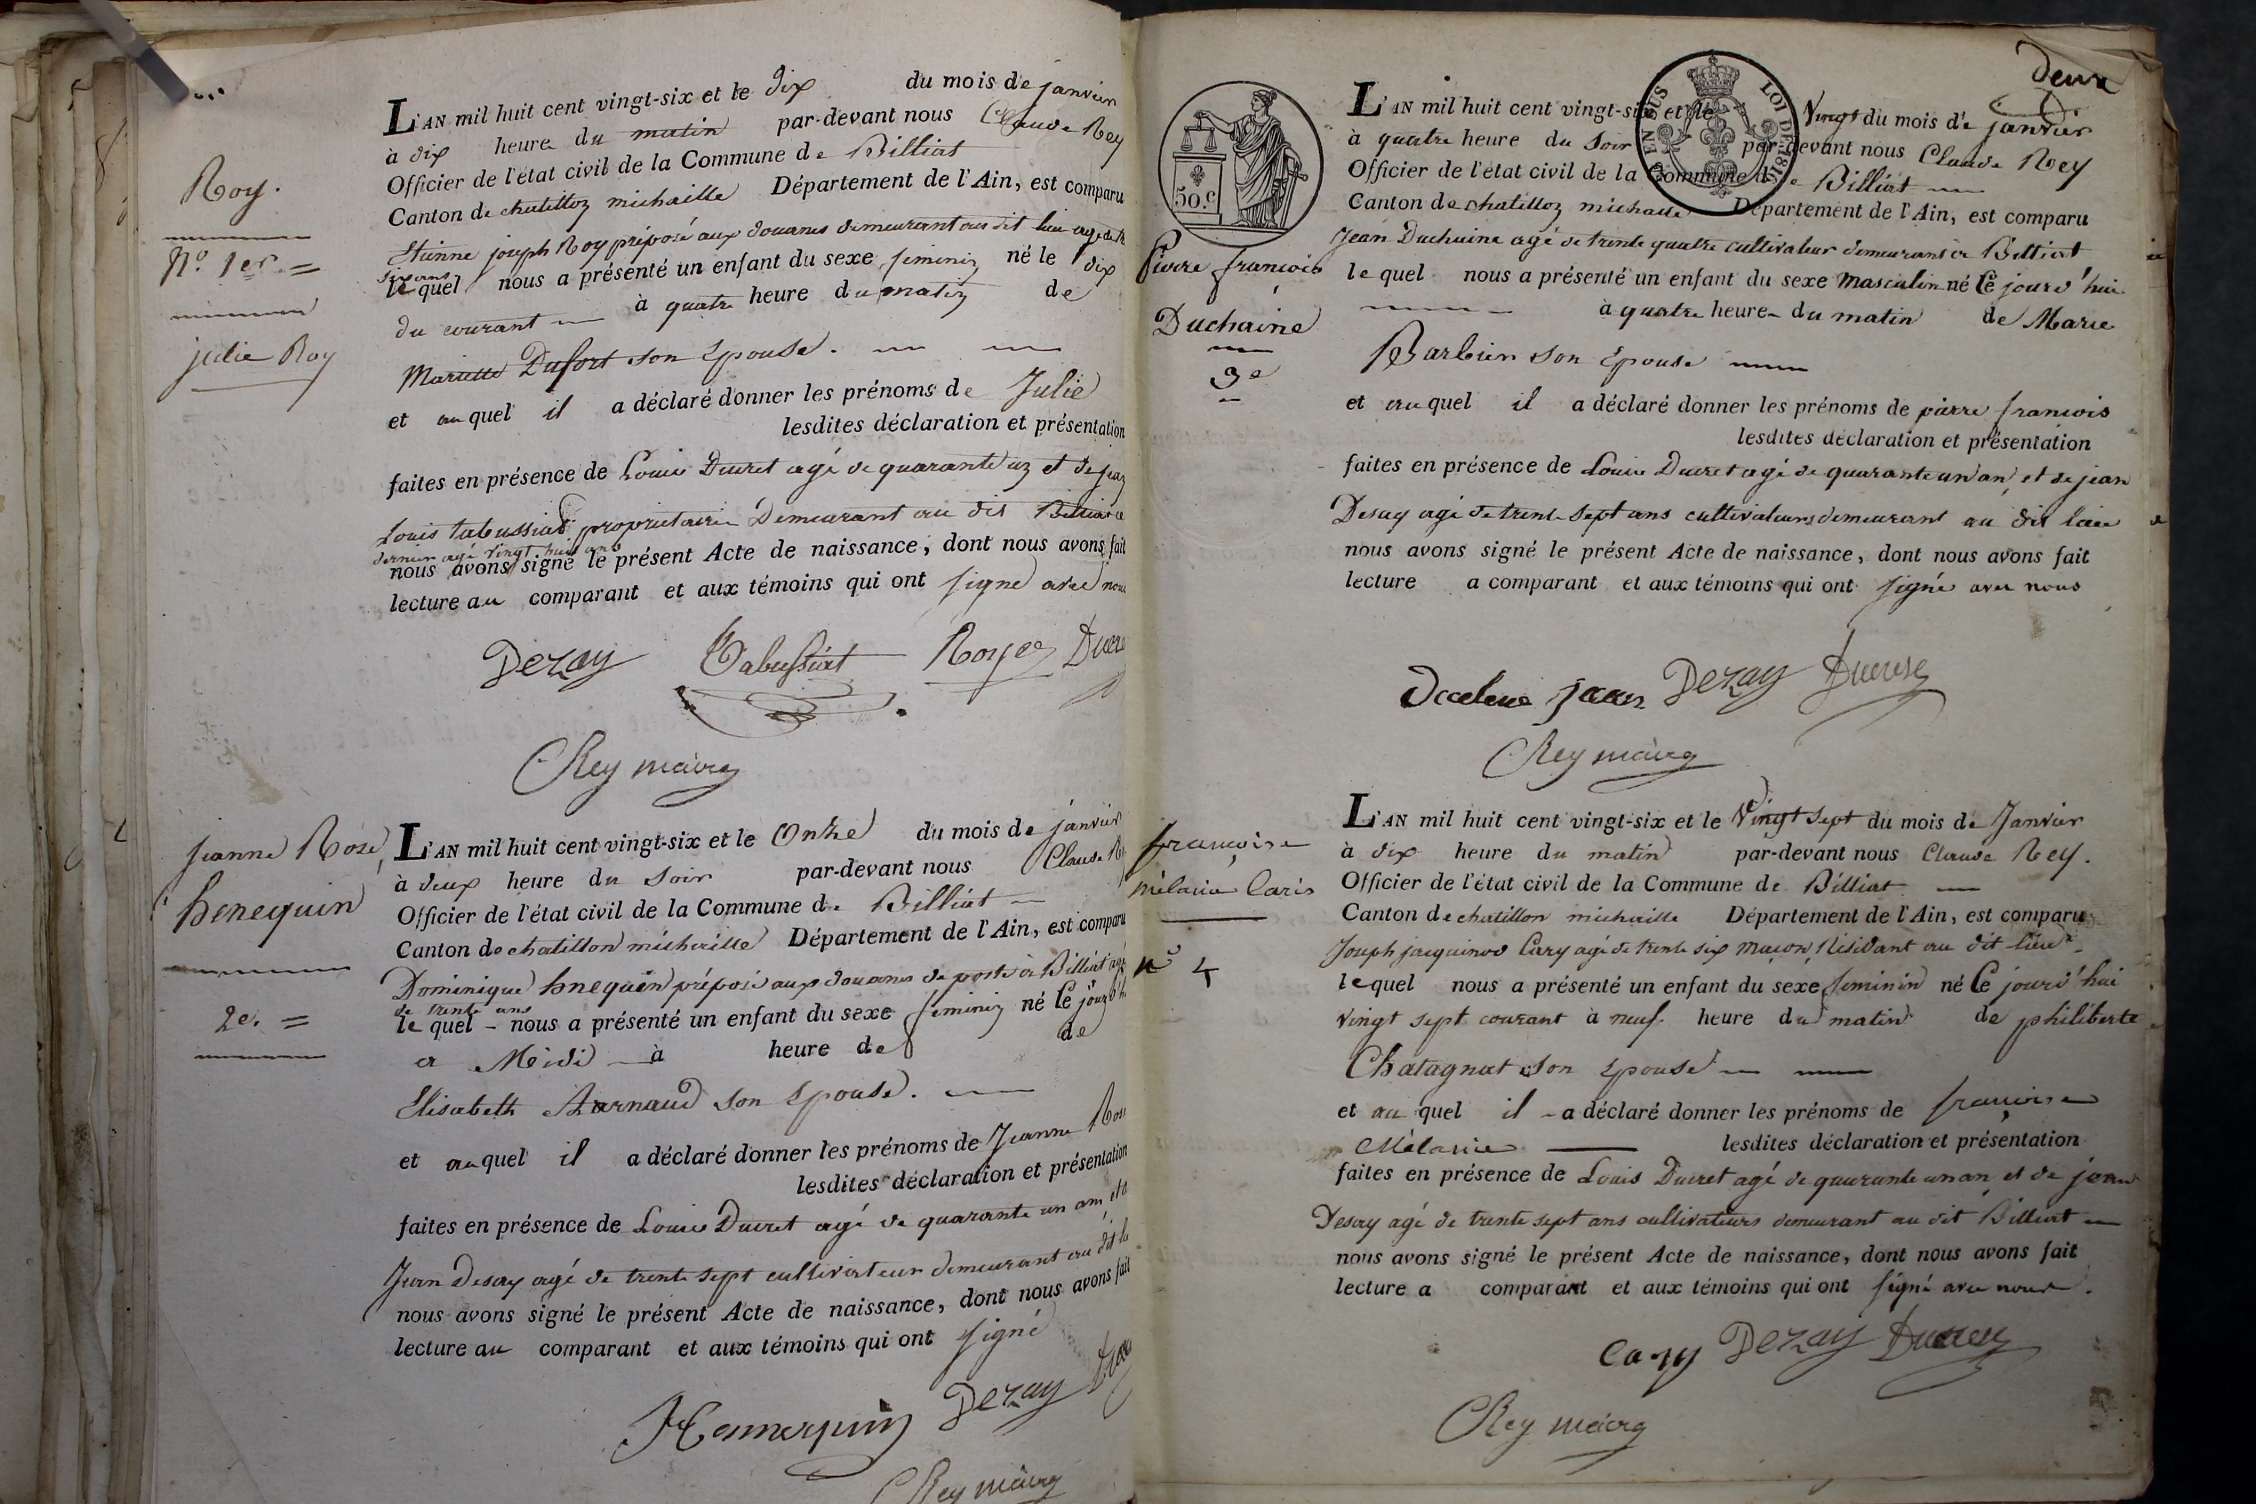 Roy.
N.º 1er. =
julie Roy
L'AN mil huit cent vingt-six et le dix du mois de janvier
à dix heure du matin par-devant nous Claude Rey
Officier de l'état civil de la Commune de Billiat
Canton de chatillon michaille Département de l'Ain, est comparu
Etienne joseph Roy préposé aux douanes demeurant au dit lieu agé de
six ans
le quel nous a présenté un enfant du sexe feminin né le dix
du courant à quatre heure du matin de
Mariette Dufort son Epouse.
et au quel il a déclaré donner les prénoms de Julie
lesdites déclaration et présentation
faites en présence de Louis Ducret agé de quarante un et de jean
Louis tabussiat proprietaire Demeurant au dit Billiat ce
dernier agé vingt huit ans
nous avons signé le présent Acte de naissance, dont nous avons fait
lecture au comparant et aux témoins qui ont signé avec nous
Dezay Tabussiat Roy Ducre
CRey maire
jeanne Rose
henequin
2e. =
L'AN mil huit cent vingt-six et le Onze du mois de janvier
à deux heure du soir par-devant nous Claude
Officier de l'état civil de la Commune de Billiat
Canton de chatillon michaille Département de l'Ain, est comparu
Dominique henequin préposé aux douanes de poste à Billiat agé
de trente ans
le quel nous a présenté un enfant du sexe feminin né Ce jour
a Midi à heure de de
Elisabeth Arnaud son Epouse.
et au quel il a déclaré donner les prénoms de Jeanne Rose
lesdites déclaration et présentation
faites en présence de Louis Ducret agé de quarante un an, et
Jean Desay agé de trente sept cultivateur demeurant au dit
nous avons signé le présent Acte de naissance, dont nous avons fait
lecture au comparant et aux témoins qui ont signé
Hennequin Dezay
CRey maire
deux
50.C
EN SUS
LOI DE
Pierre françois
Duchaine
3e
L'AN mil huit cent vingt-six et le Vingt du mois de janvier
à quatre heure du soir par-devant nous Claude Rey
Officier de l'état civil de la Commune de Billiat
Canton de chatillon michaille Département de l'Ain, est comparu
Jean Duchaine agé de trente quatre cultivateur demeurant à Billiat
le quel nous a présenté un enfant du sexe masculin né Ce jourd'hui
à quatre heure du matin de Marie
Barbier son Epouse
et au quel il a déclaré donner les prénoms de pierre françois
lesdites déclaration et présentation
faites en présence de Louis Ducret agé de quarante un an, et de jean
Desay agé de trente sept ans cultivateurs demeurant au dit lieu
nous avons signé le présent Acte de naissance, dont nous avons fait
lecture a comparant et aux témoins qui ont signé avec nous
jean Dezay Ducret
CRey maire
françoise
mélanie Caris
nº 4
L'AN mil huit cent vingt-six et le Vingt sept du mois de Janvier
à dix heure du matin par-devant nous Claude Rey.
Officier de l'état civil de la Commune de Billiat
Canton de chatillon michaille Département de l'Ain, est comparu
Joseph jacquinod Cary agé de trente six maçon Résidant au dit lieu
le quel nous a présenté un enfant du sexe feminin né Ce jourd'hui
vingt sept courant à neuf heure du matin de philiberte
Chatagnat son Epouse
et au quel il a déclaré donner les prénoms de françoise
Mélanie lesdites déclaration et présentation
faites en présence de Louis Ducret agé de quarante un an, et de jean
Desay agé de trente sept ans cultivateurs demeurant au dit Billiat
nous avons signé le présent Acte de naissance, dont nous avons fait
lecture a comparant et aux témoins qui ont signé avec nous.
Cary Dezay Ducret
CRey maire